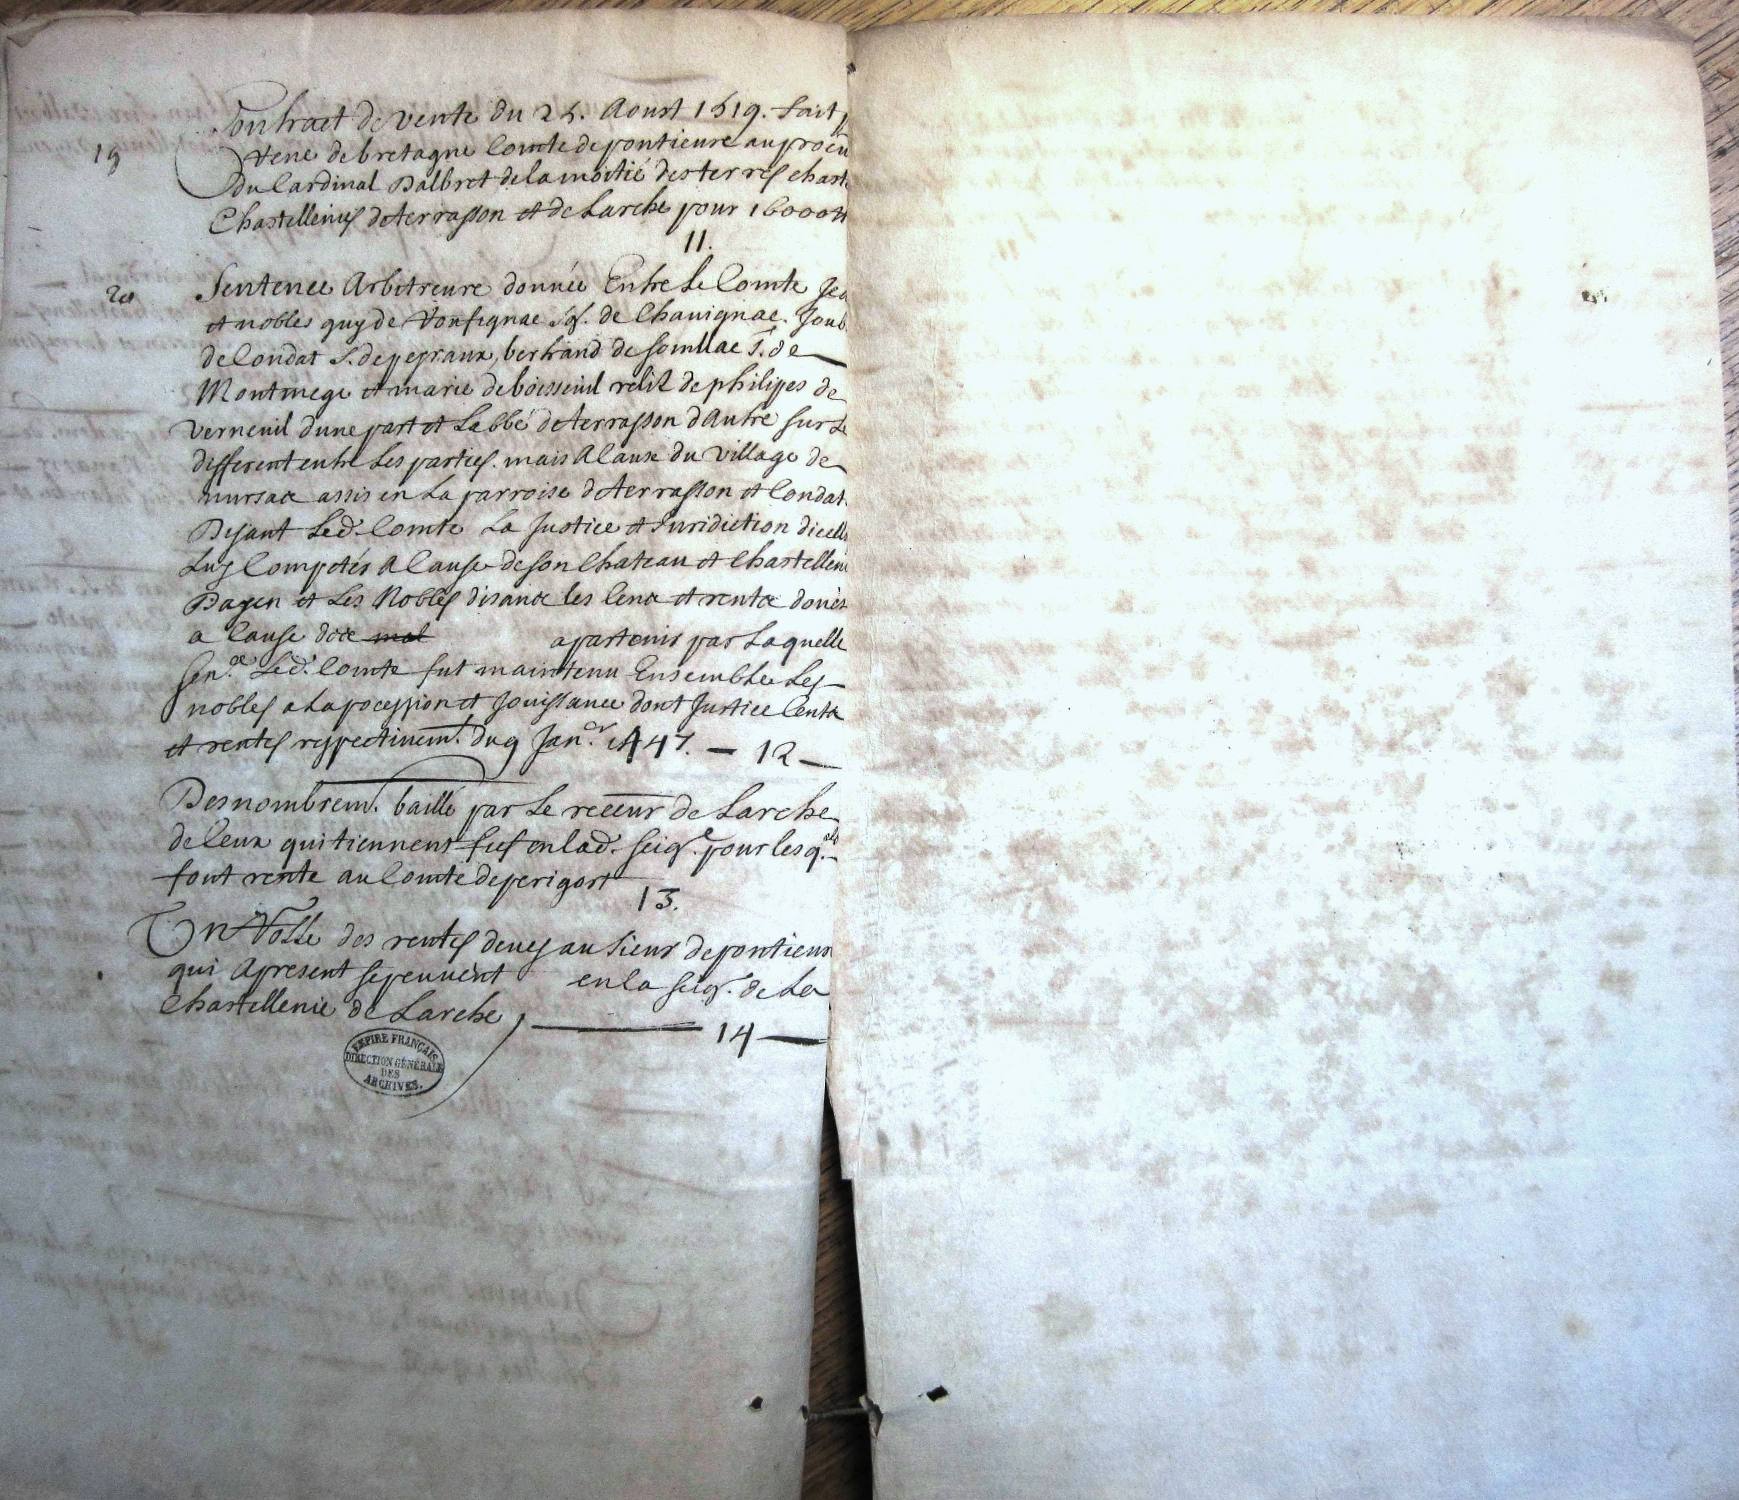 Contract de vente du 25. Aoust 1519. fait p
19
Rene de bretagne Comte de pontieure au procu
du Cardinal Dalbret de la moitié des terres chast
Chastellenies de terrasson et de Larche pour 16000 tt
11.
20
Sentence Arbitreure donnée Entre Le Comte Jea
et nobles guy de Sgr. de Chauignac. Joub
de Condat S. de pegraux, bertrand de Souillac S. de
Montmege et marie de boisseuil relit de philipes de
Verneuil dune part et Labbé de terrasson dAutre Sur Le
different entre Les parties. mais A Cause du Village de
mursac assis en La parroise de terrasson et Condat.
Disant Led. Comte La Justice et Juridiction dicell
Luy Competés A Cause de son Chateau et Chastelleni
Dayen et Les Nobles disant les Cena et rente donés
a Cause dice mat apartenir par Laquelle
Sen.ce Led. Comte fut maintenu Ensemble Les
nobles a La pocession et Jouissance dont Justice Centa
et rentes respectiuem.t du 9 Jan.er 1447. - 12 -
Desnombrem.t baillé par Le receur de Larche
de Ceux qui tiennent fief en lad. Seig.e pour lesq.els
font rente au Comte de perigort
13.
Un Rolle des rentes deues au Sieur de pontieur
qui Apresent se peuuent en la Seig.r de La
Chastellenie de Larche, 14
EMPIRE FRANÇAIS
DIRECTION GÉNÉRALE
DES
ARCHIVES.